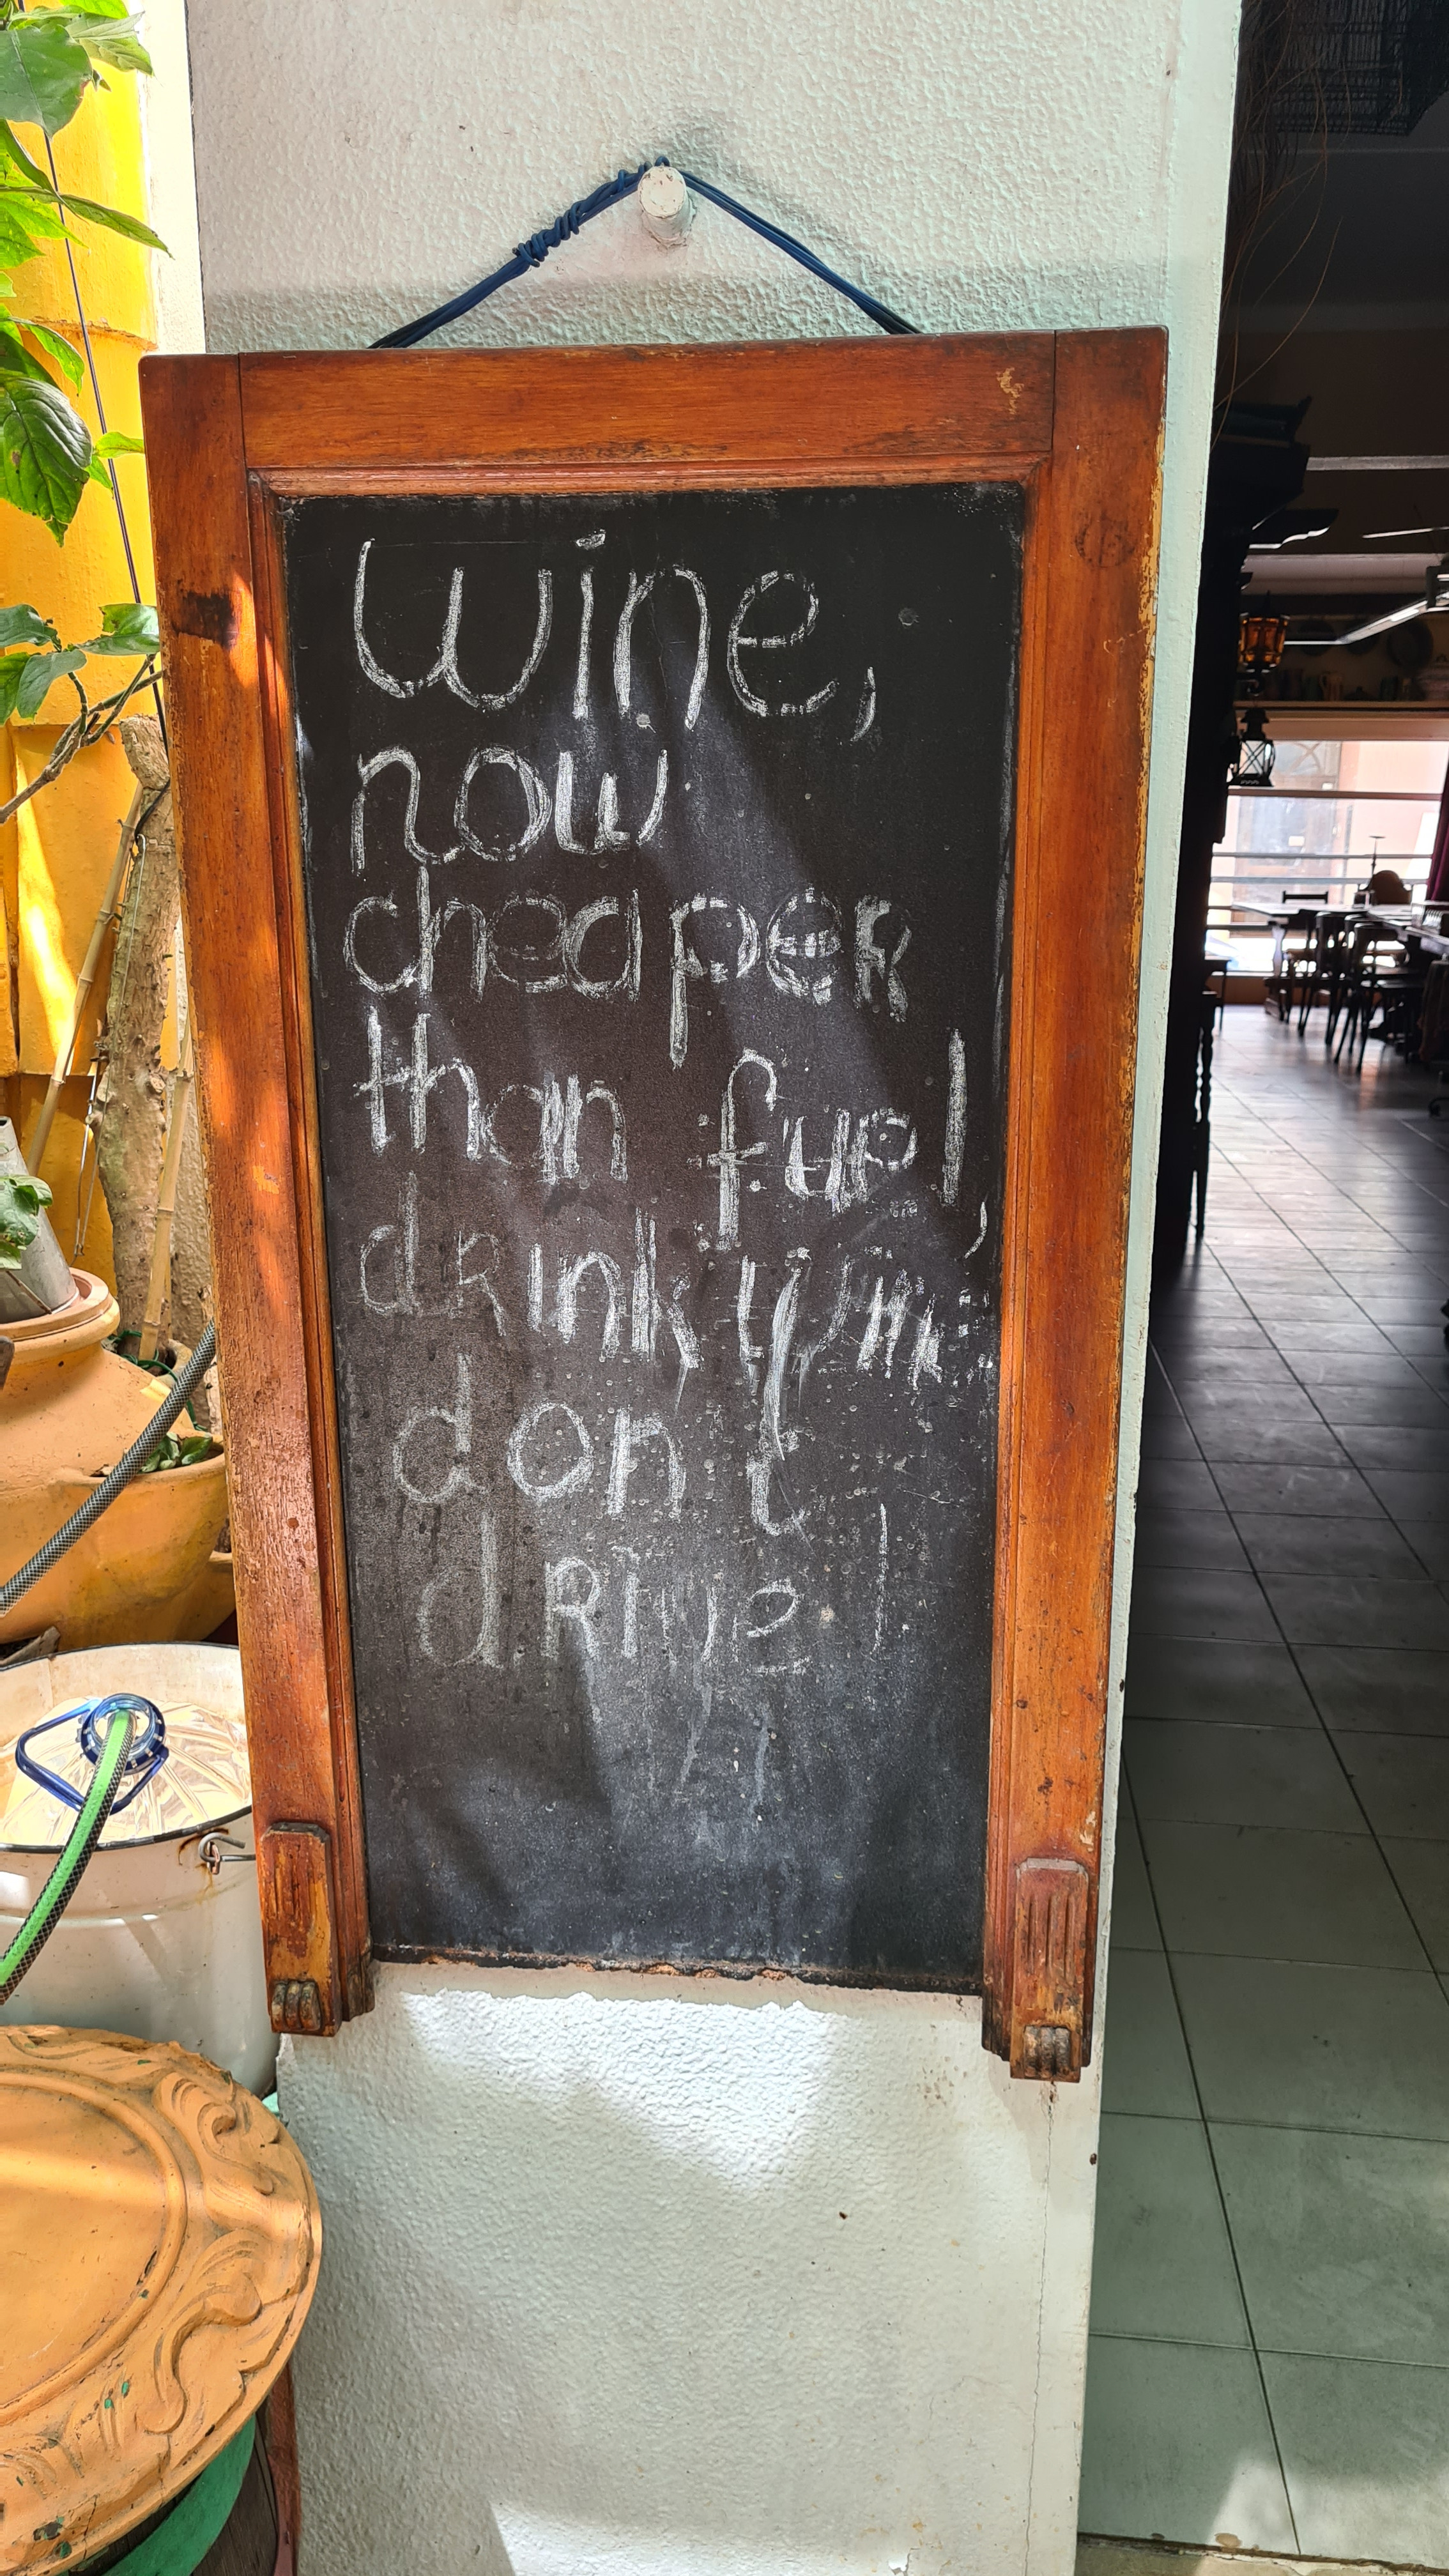 wine,
now
cheaper
than fuel,
drink wine
don't
drive!